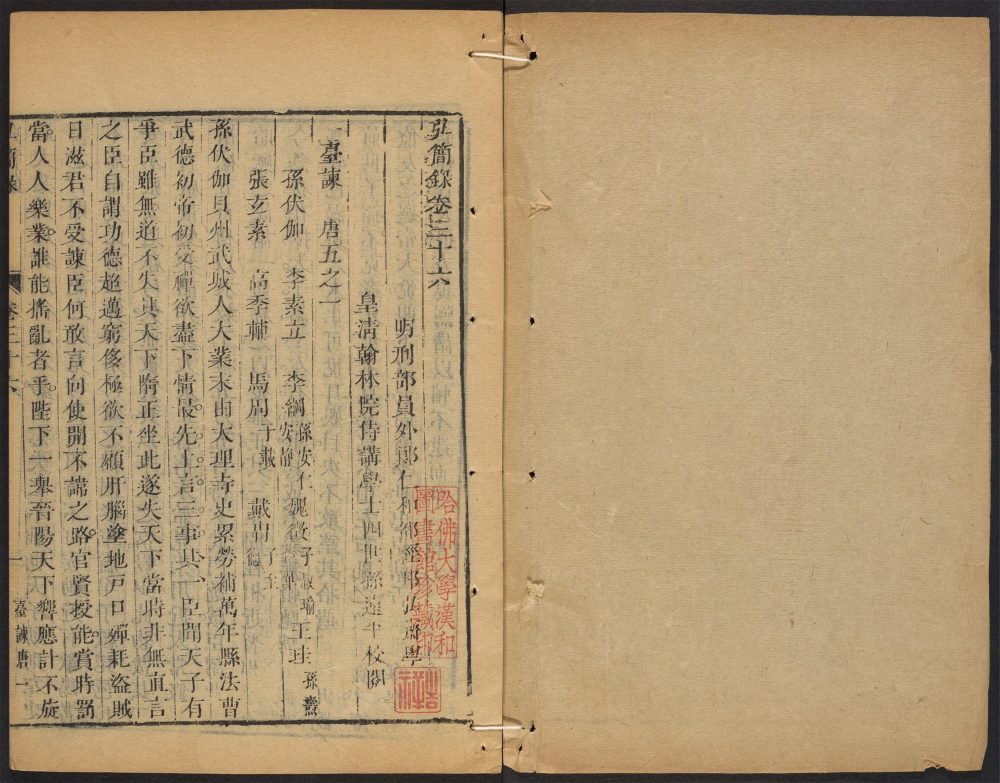 弘簡錄卷三十六
明刑部員外郎仁和邵經邦弘齋學
皇清翰林院侍講學士四世孫遠平校閱
臺諫　唐五之一
孫伏伽　李素立　李綱　孫安仁　安靜　魏徵　子叔瑜　華　王珪　孫燾
張玄素　高季輔　馬周　子載　戴冑　子至德
孫伏伽貝州武城人大業末由大理寺史累勞補萬年縣法曹
武德初帝初受禪欲盡下情最先上言三事其一臣聞天子有
爭臣雖無道不失其天下隋正坐此遂失天下當時非無直言
之臣自謂功德超邁窮侈極欲不顧肝腦塗地戶口殫耗盜賊
日滋君不受諫臣何敢言向使開不諱之路官賢授能賞時罰
當人人樂業誰能搖亂者乎陛下一舉晉陽天下響應計不旋
弘簡錄
卷三十六
一
臺諫唐一
哈佛大學漢和
圖書館珍藏印